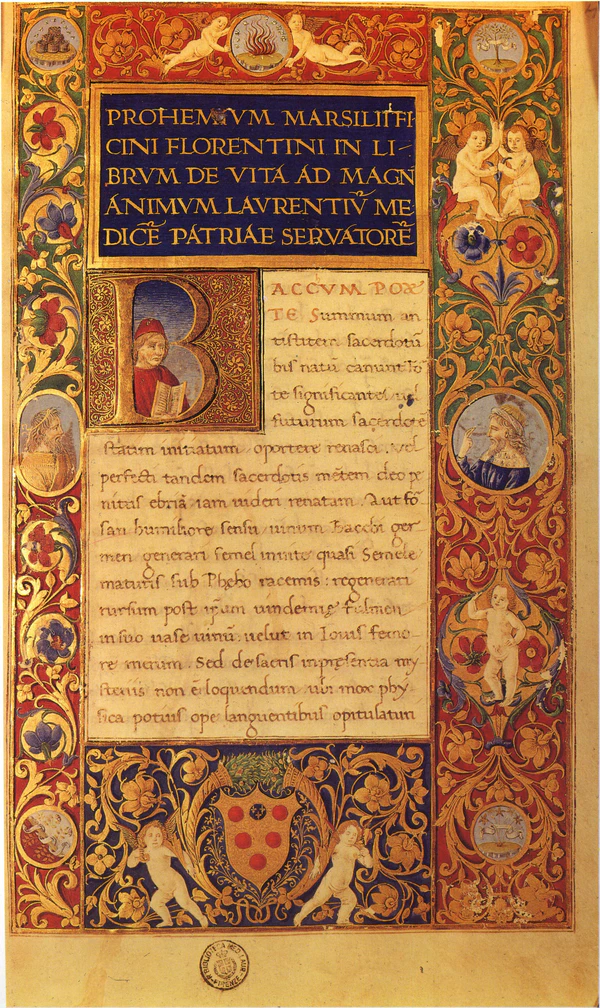 PROHEMIVM MARSILII FI
CINI FLORENTINI IN LI-
BRVM DE VITA AD MAGN
ANIMVM LAVRENTIV̄ ME
DICĒ PATRIAE SERVATORĒ
BACCVM POE
TE Summum an
tistitem sacerdotū
bis natū canunt. Fo
te significantes vel
futurum sacerdotē
statim initiatum oportere renasci. vel
perfecti tandem sacerdotis mētem deo p
nitus ebriā iam videri renatam. Aut fo
san humiliore sensu vinum Bacchi ger
men generari semel in vite quasi Semele
maturis sub Phębo racemis: regenerari
rursum post ipsum vindemię fulmen
in suo vase vinū. velut in Iovis femo-
re merum. Sed de sacris in presentia my-
steriis non ē loquendum. ubi mox phy
sica potius ope languentibus opitulaturi